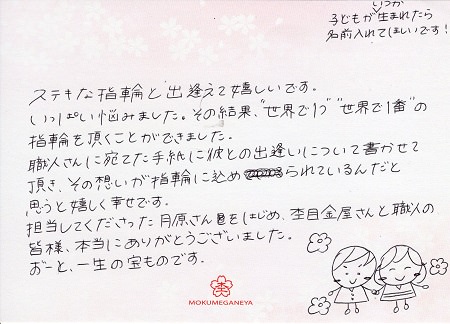 いつか
子どもが生まれたら
名前入れてほしいです!
ステキな指輪と出逢えて嬉しいです。
いっぱい悩みました。その結果、"世界で1つ""世界で1番"の
指輪を頂くことができました。
職人さんに宛てた手紙に彼との出逢いについて書かせて
頂き、その想いが指輪に込められているんだと
思うと嬉しく幸せです。
担当してくださった月原さんをはじめ、杢目金屋さんと職人の
皆様、本当にありがとうございました。
ずーと、一生の宝ものです。
杢
MOKUMEGANEYA